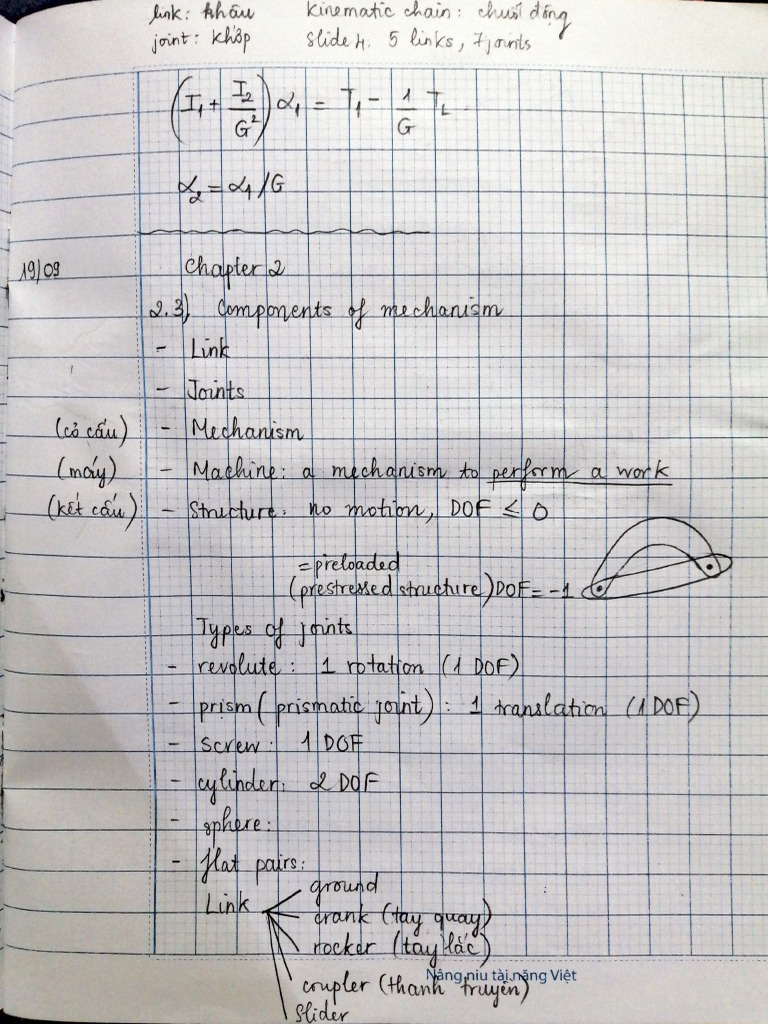 link: khâu kinematic chain: chuỗi động
joint: khớp slide 4: 5 links, 7 joints
(I₁ + I₂/G²) α₁ = T₁ - 1/G T_L
α₂ = α₁/G
19/09 Chapter 2
2.3) Components of mechanism
- Link
- Joints
(cơ cấu) - Mechanism
(máy) - Machine: a mechanism to perform a work
(kết cấu) - Structure: no motion, DOF ≤ 0
= preloaded
(prestressed structure) DOF = -1
Types of joints
- revolute: 1 rotation (1 DOF)
- prism (prismatic joint): 1 translation (1 DOF)
- screw: 1 DOF
- cylinder: 2 DOF
- sphere:
- flat pairs:
ground
Link crank (tay quay)
rocker (tay lắc)
Nâng niu tài năng Việt
coupler (thanh truyền)
slider